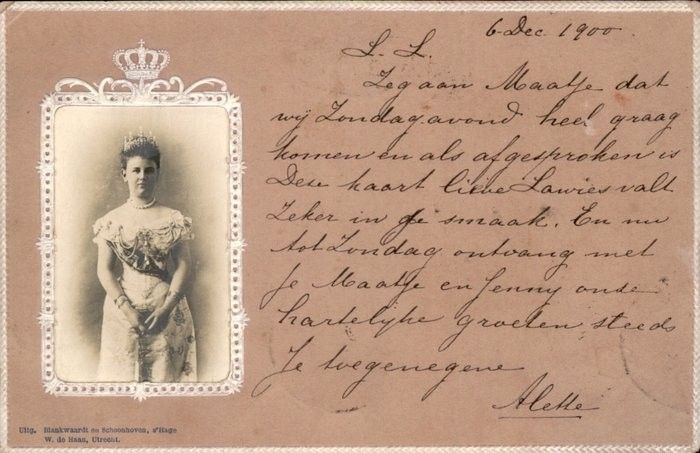 6 Dec. 1900.
L. L.
Zeg aan Maatje dat
wij Zondagavond heel graag
komen en als afgesproken is
Deze kaart lieve Lawies valt
Zeker in de smaak. En nu
tot Zondag ontvang met
je Maatje en Jenny onze
hartelijke groeten steeds
Je toegenegene
Alette
Uitg. Blankwaardt en Schoonhoven, s'Hage
W. de Haan, Utrecht.